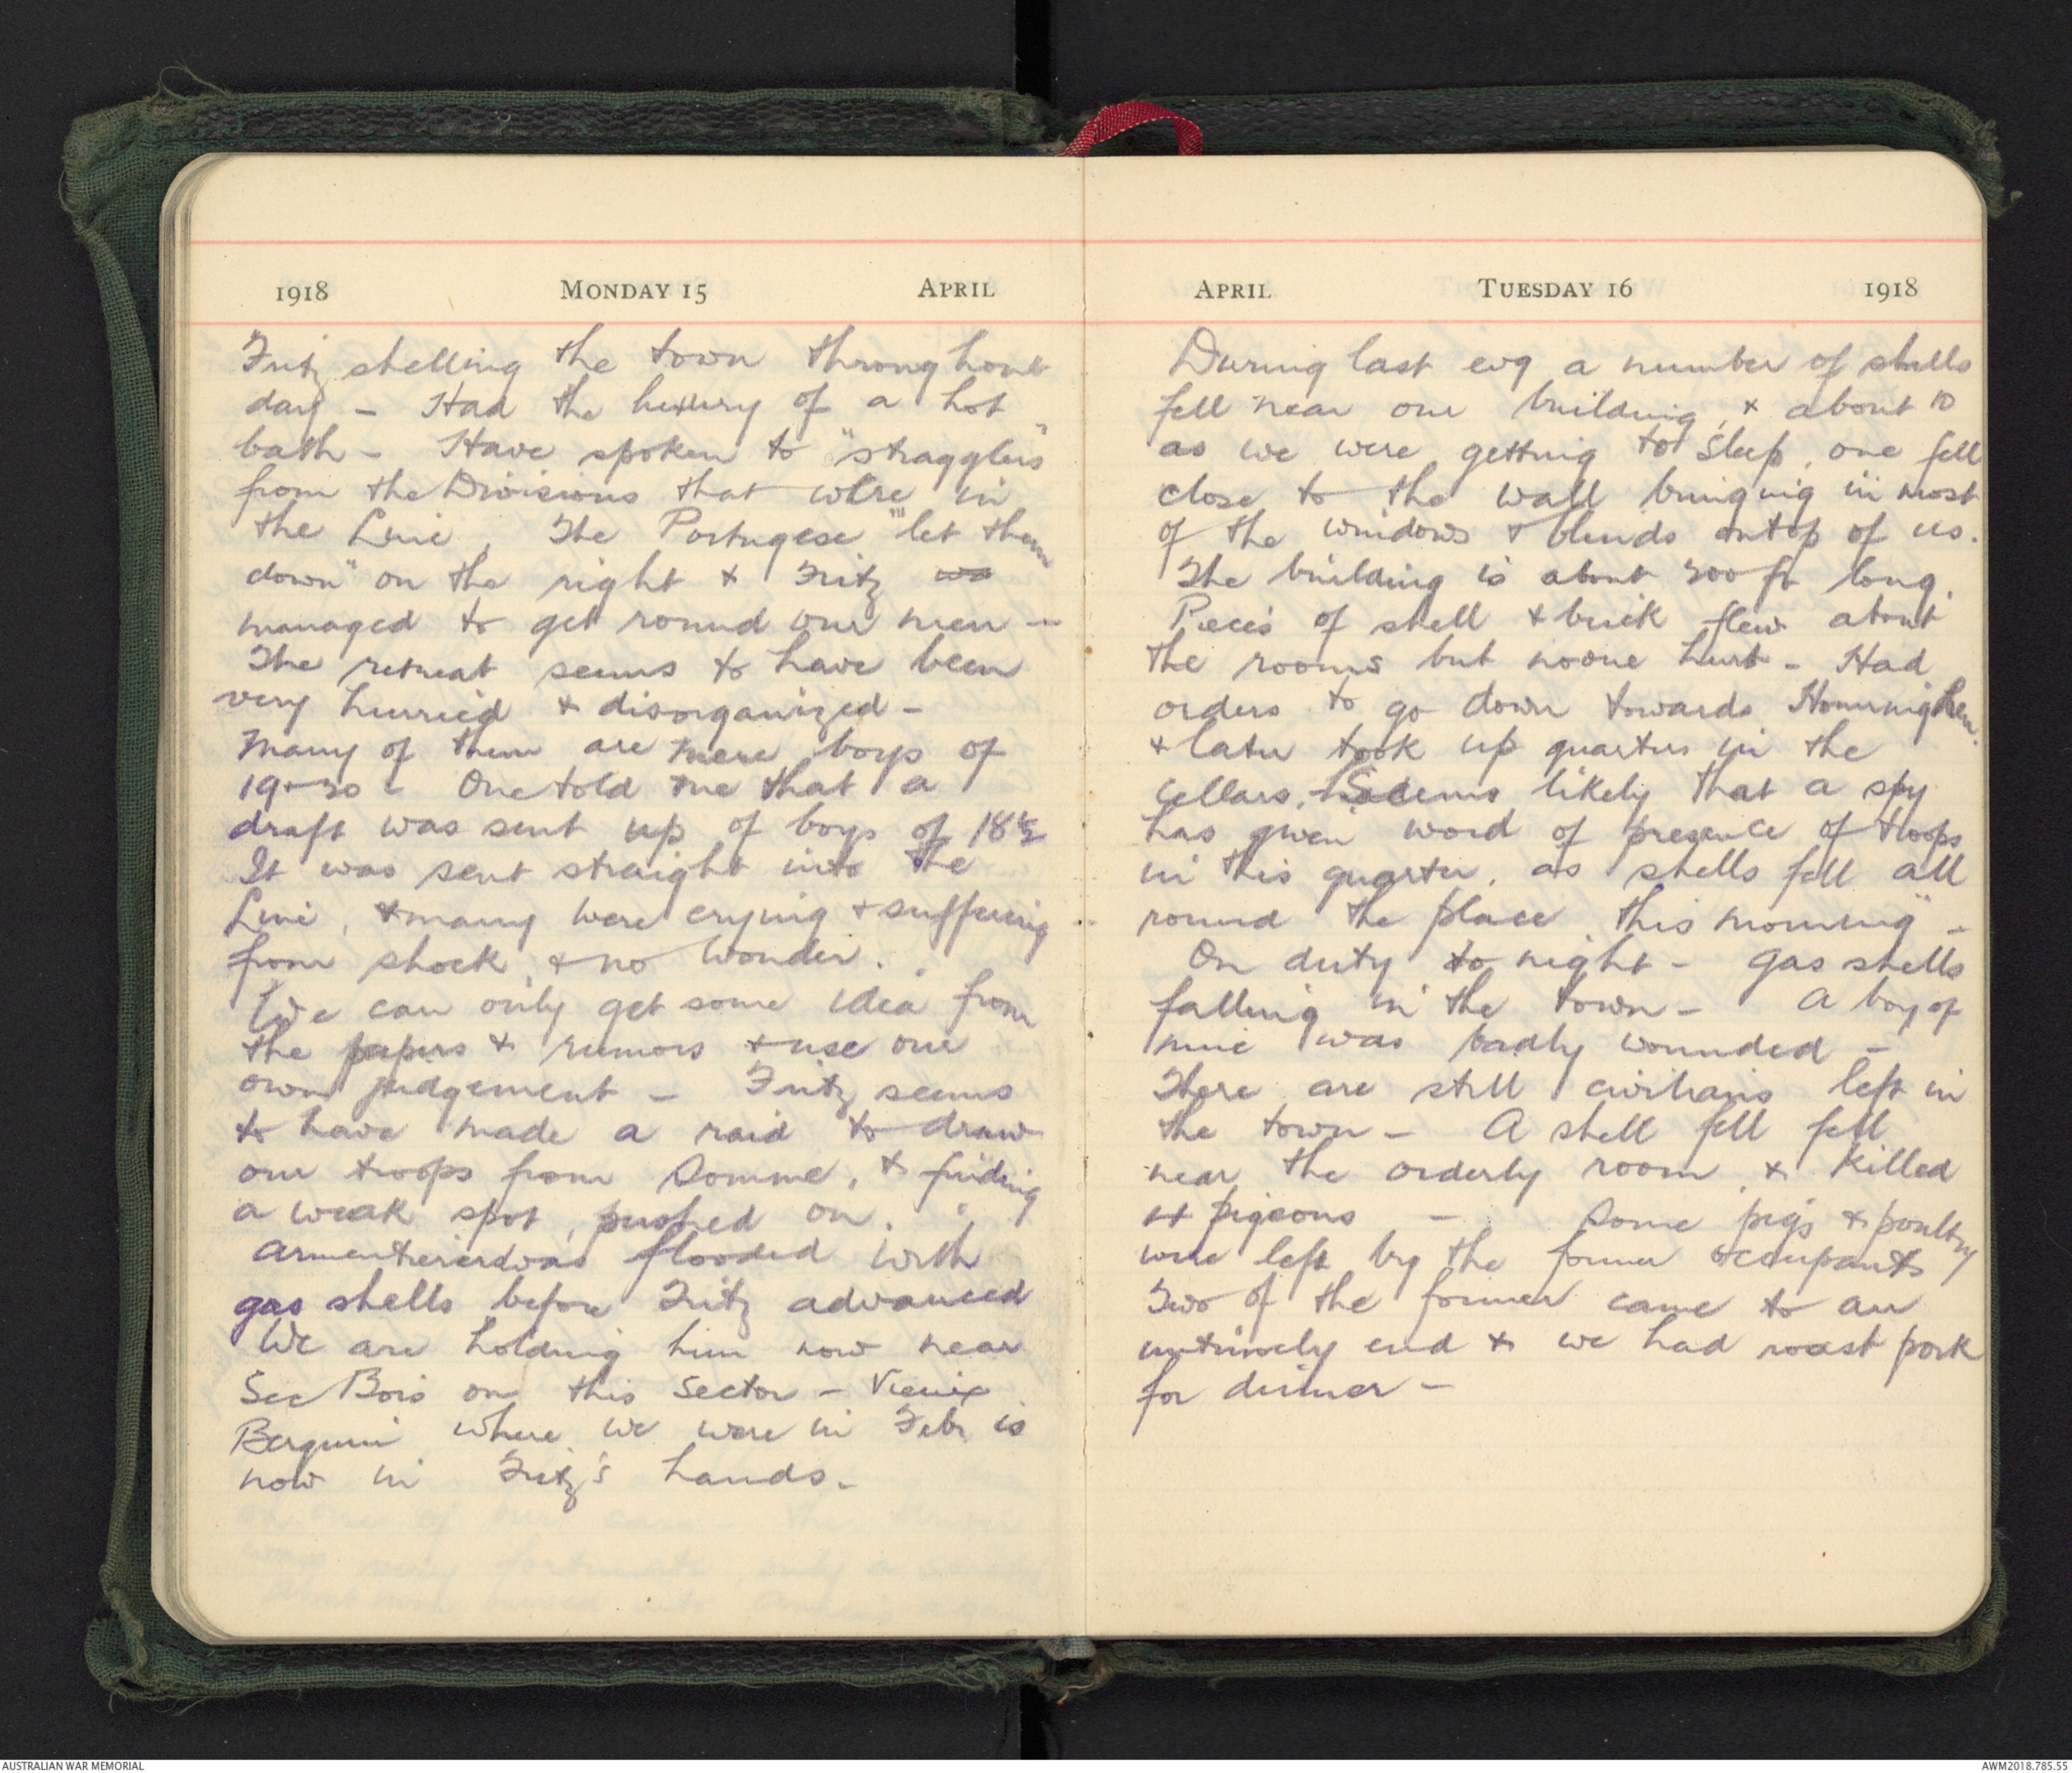 1918 MONDAY 15 APRIL
Fritz shelling the town throughout
day - Had the luxury of a hot
bath - Have spoken to "stragglers"
from the Divisions that were in
the Line. The Portugese "let them
down" on the right & Fritz wa
managed to get round our men -
The retreat seems to have been
very hurried & disorganized -
Many of them are mere boys of
19-20 - One told me that a
draft was sent up of boys of 18½
It was sent straight into the
Line, & many were crying & suffering
from shock, & no wonder.
We can only get some idea from
the papers & rumors & use our
own judgement - Fritz seems
to have made a raid to draw
our troops from Somme, & finding
a weak spot, pushed on.
Armentiers was flooded with
gas shells before Fritz advanced
We are holding him now near
Sec Bois on this Sector - Vieux
Berquin where we were in Feb. is
now in Fritz's hands -
APRIL TUESDAY 16 1918
During last evg a number of shells
fell near our building, & about 10
as we were getting to sleep, one fell
close to the wall bringing in most
of the windows & blinds ontop of us.
The building is about 200 ft long.
Pieces of shell & brick flew about
the rooms but noone hurt - Had
orders to go down towards Honninghem.
& later took up quarters in the
cellars. Seems likely that a spy
has given word of presence of troops
in this quarter, as shells fell all
round the place this morning -
On duty to night - gas shells
falling in the town - A boy of
mine was badly wounded -
There are still civilians left in
the town - A shell fell fell
near the orderly room & killed
14 pigeons - Some pigs & poultry
were left by the former occupants
Two of the former came to an
untimely end & we had roast pork
for dinner -
AUSTRALIAN WAR MEMORIAL AWM2018.785.55